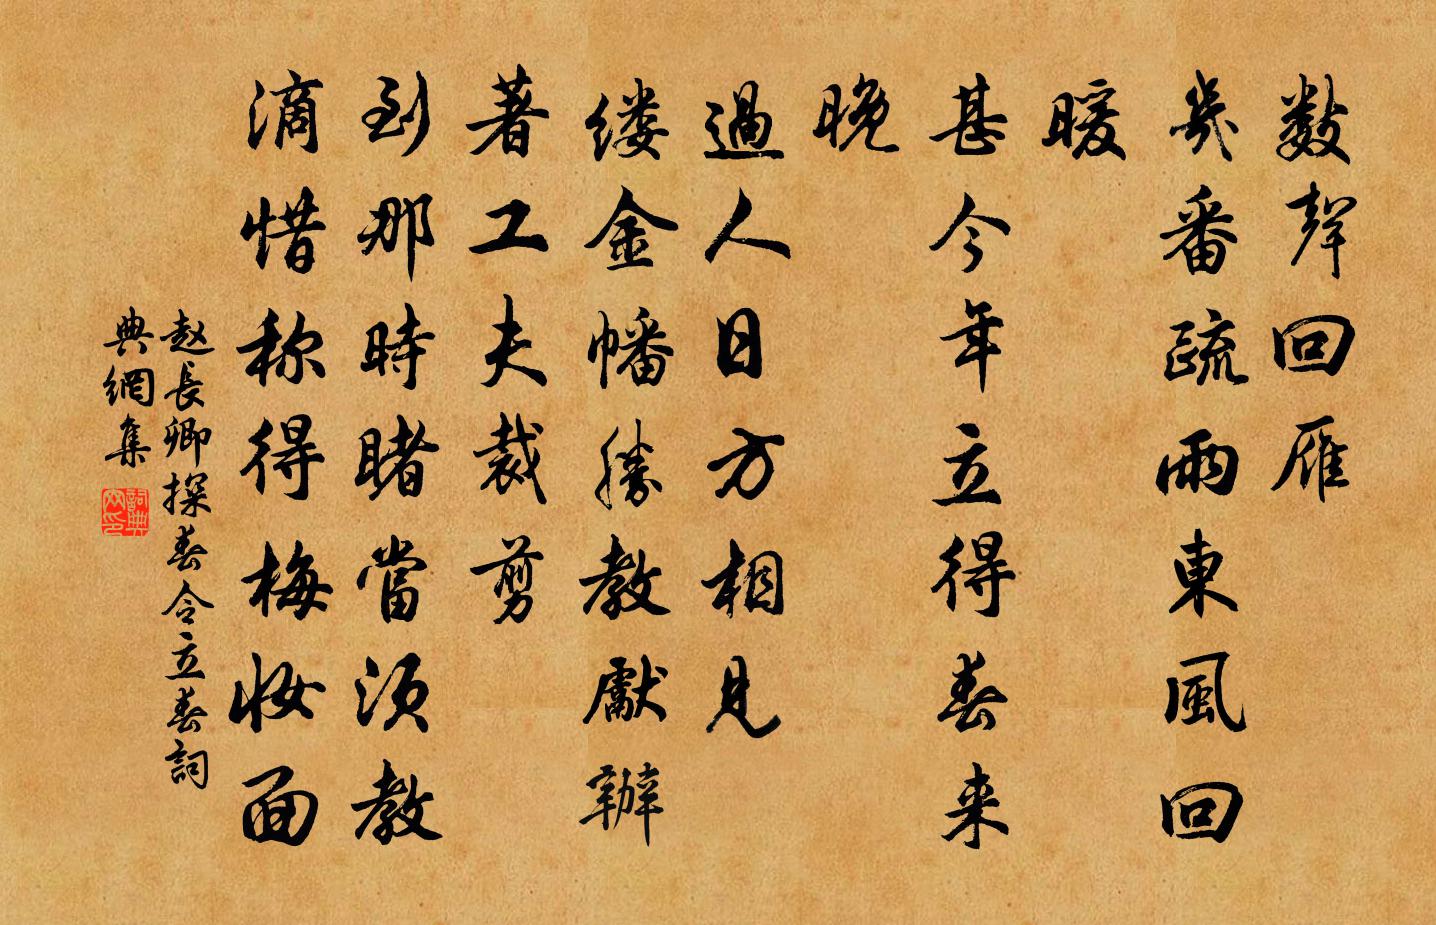 数聲回雁
幾番疏雨東風回
暖
甚今年立得春来
晚
過人日方相見
缕金幡勝教獻辦
著工夫裁剪
到那時睹當须教
滴惜称得梅妆面
赵長卿探春令立春詞
典網集
詞典
网印